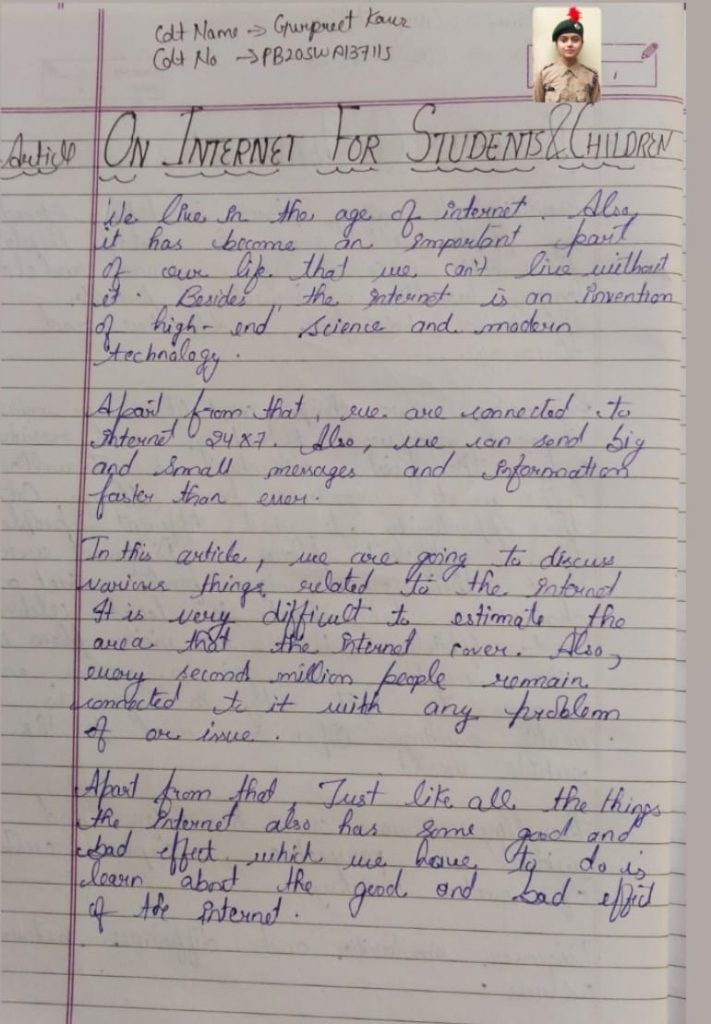 Cdt Name → Gurpreet Kaur
Cdt No → PB20SWA137115
Article On Internet For Students & Children
We live in the age of internet. Also,
it has become an important part
of our life that we can't live without
it. Besides, the internet is an invention
of high-end science and modern
technology.
Apart from that, we are connected to
internet 24x7. Also, we can send big
and small messages and information
faster than ever.
In this article, we are going to discuss
various things related to the internet
It is very difficult to estimate the
area that the internet cover. Also,
every second million people remain
connected to it with any problem
of or issue.
Apart from that, Just like all the things
the internet also has some good and
bad effect which we have to do is
learn about the good and bad effect
of the internet.